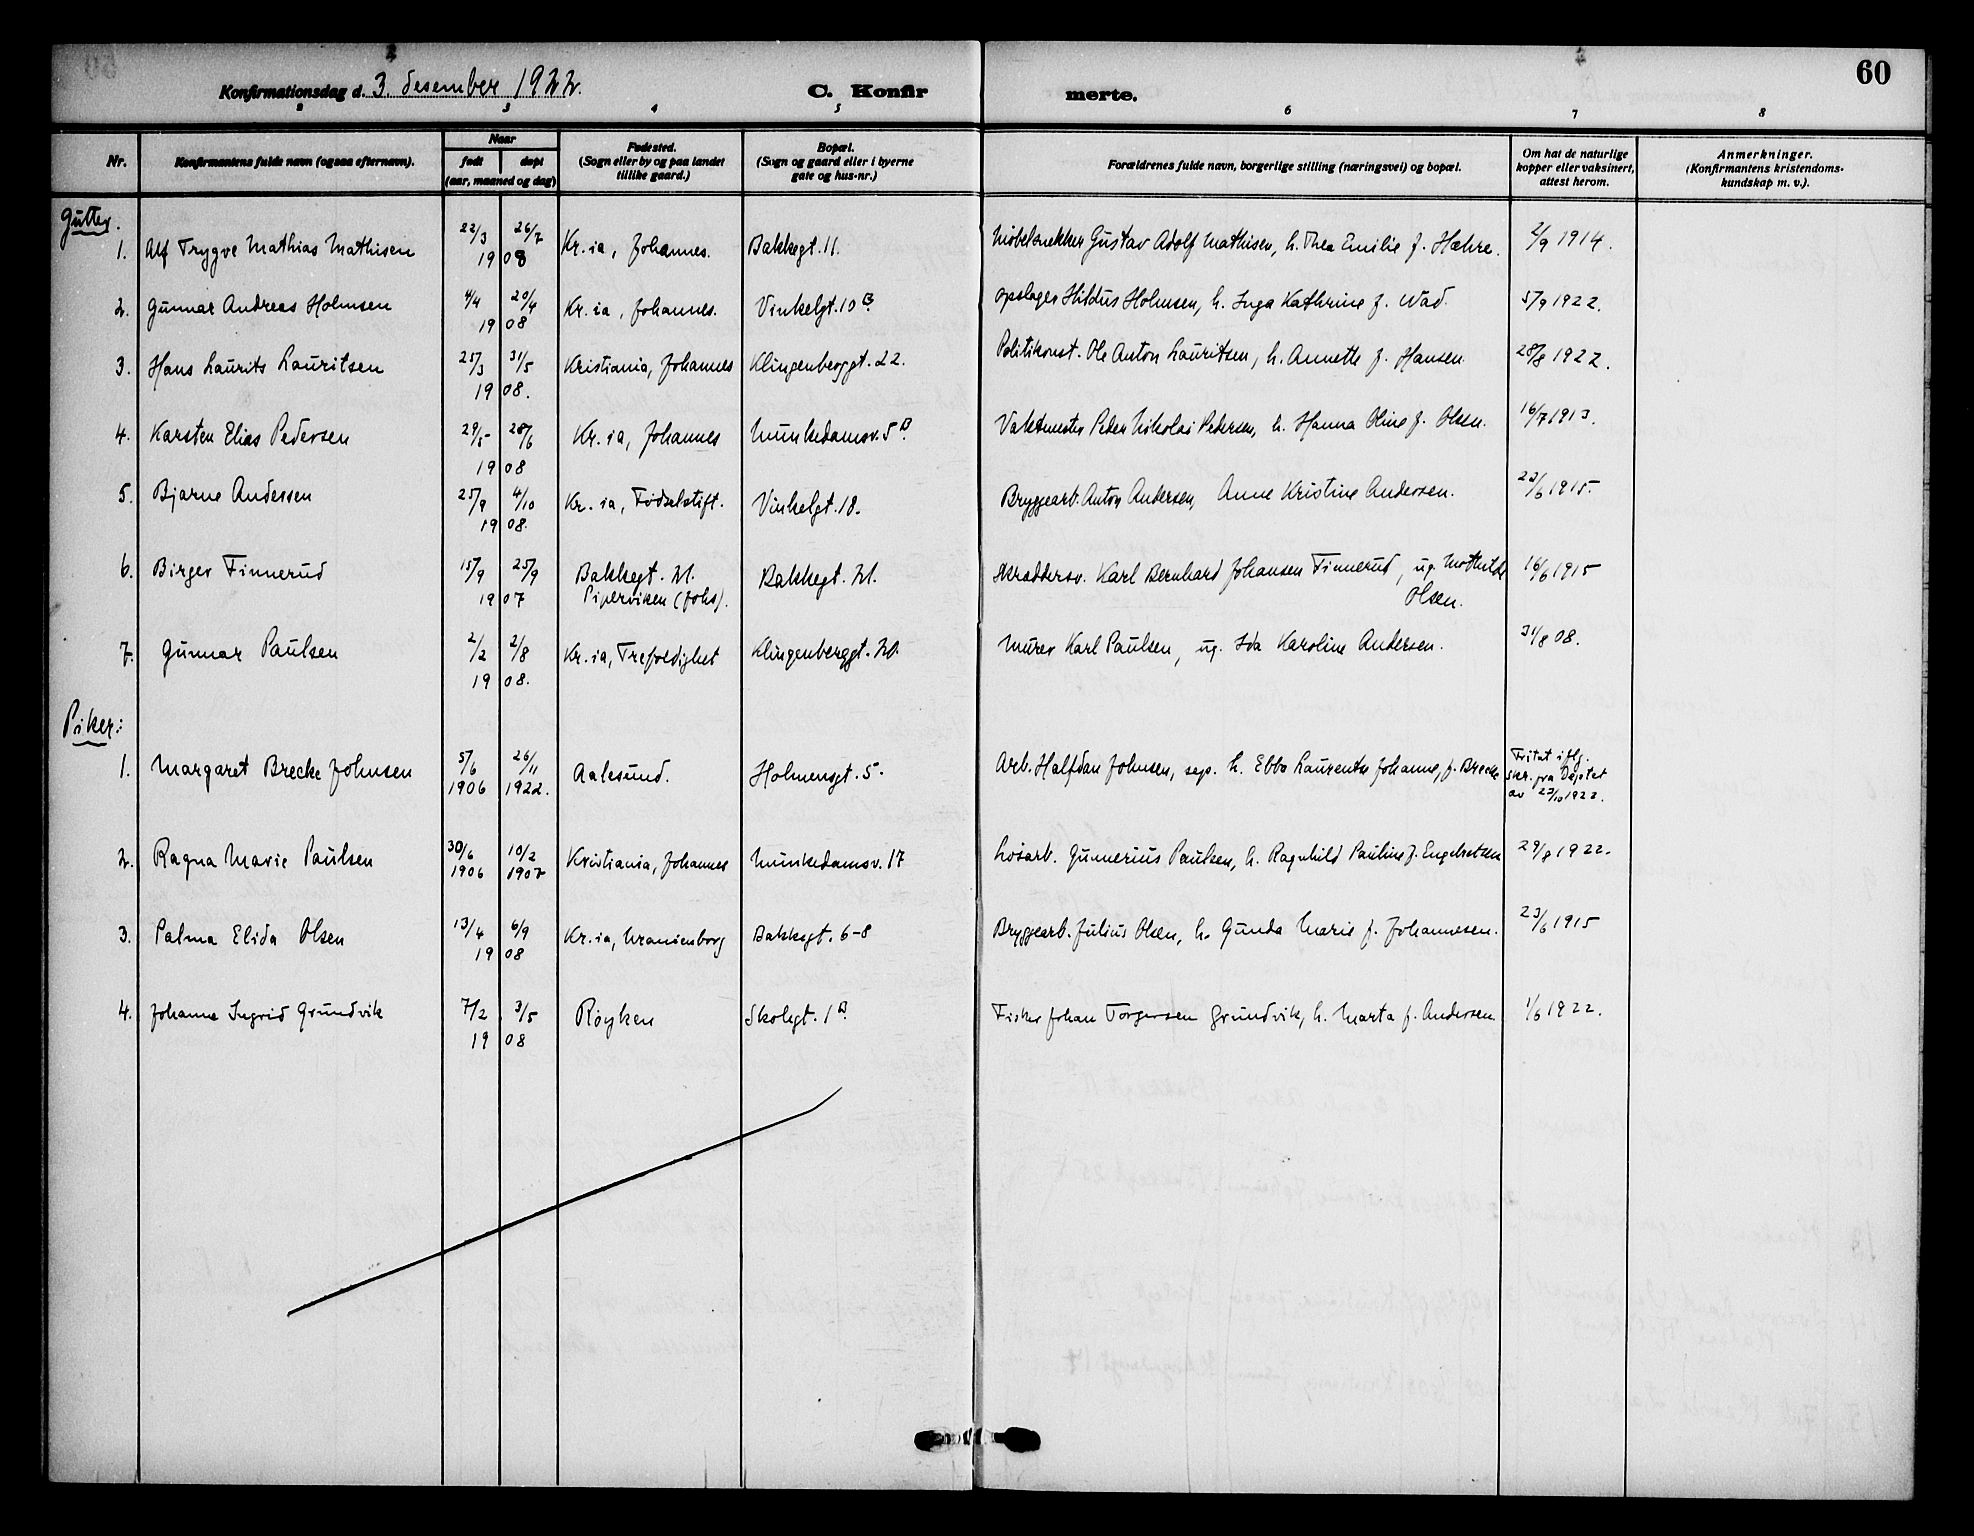 60
Konfirmationsdag d. 3. desember 1922. C. Konfir merte.
2 3 4 5 6 7 8
Nr. Konfirmantens fulde navn (ogsaa efternavn). Naar født døpt (aar, maaned og dag) Fødested. (Sogn eller by og paa landet tillike gaard.) Bopæl. (Sogn og gaard eller i byerne gate og hus-nr.) Forældrenes fulde navn, borgerlige stilling (næringsvei) og bopæl. Om hat de naturlige kopper eller vaksinert, attest herom. Anmerkninger. (Konfirmantens kristendoms-kundskap m. v.).
Gutter.
1. Alf Trygve Mathias Mathisen 22/3 26/7 1908 Kr.ia, Johannes. Bakkegt. 11. Møbelsnekker Gustav Adolf Mathisen, h. Thea Emilie f. Hæhre. 2/9 1914.
2. Gunnar Andreas Holmsen 4/4 20/4 1908 Kr.ia, Johannes. Vinkelgt. 10 B. Opslager Hildus Holmsen, h. Inga Kathrine f. Wad. 5/9 1922.
3. Hans Laurits Lauritsen 25/3 31/5 1908. Kristiania, Johannes Klingenberggt. 22. Politikonst. Ole Anton Lauritsen, h. Annette f. Hansen. 28/8 1922.
4. Karsten Elias Pedersen 29/5 28/6 1908 Kr.ia, Johannes Munkedamsv. 5 B. Vaktmester Peder Nikolai Pedersen, h. Hanna Oline f. Olsen. 16/7 1913.
5. Bjarne Andersen 25/9 4/10 1908. Kr.ia, Fødselstift. Vinkelgt. 18. Bryggearb. Anton Andersen, Anne Kristine Andersen. 23/6 1915.
6. Birger Finnerud 15/9 25/9 1907 Bakkegt. 21. Piperviken (Johs). Bakkegt. 21. Skræddersv. Karl Bernhard Johansen Finnerud, ug. Mathilde Olsen. 16/6 1915
7. Gunnar Paulsen 2/2 2/8 1908. Kr.ia, Trefoldighet Klingenberggt. 20. Murer Karl Paulsen, ug. Ida Karoline Andersen. 31/8 08.
Piker:
1. Margaret Brecke Johnsen 5/6 1906 26/11 1922. Aalesund. Holmensgt. 5. Arb. Halfdan Johnsen, sep. h. Ebba Laurentse Johanne, f. Brecke Fritat iflg. skr. fra Depstet av 23/10 1922.
2. Ragna Marie Paulsen 30/6 1906 10/2 1907 Kristiania, Johannes Munkedamsv. 17 Løsarb. Gunnerius Paulsen, h. Ragnhild Pauline f. Engebretsen 29/8 1922.
3. Palma Elida Olsen 13/4 6/9 1908 Kr.ia, Uranienborg Bakkegt. 6-8 Bryggearb. Julius Olsen, h. Gunda Marie f. Johannesen. 23/6 1915
4. Johanne Ingrid Grundvik 7/2 3/5 1908 Røyken Skolegt. 1 B. Fisker Johan Torgersen Grundvik, h. Marta f. Andersen 1/6 1922.